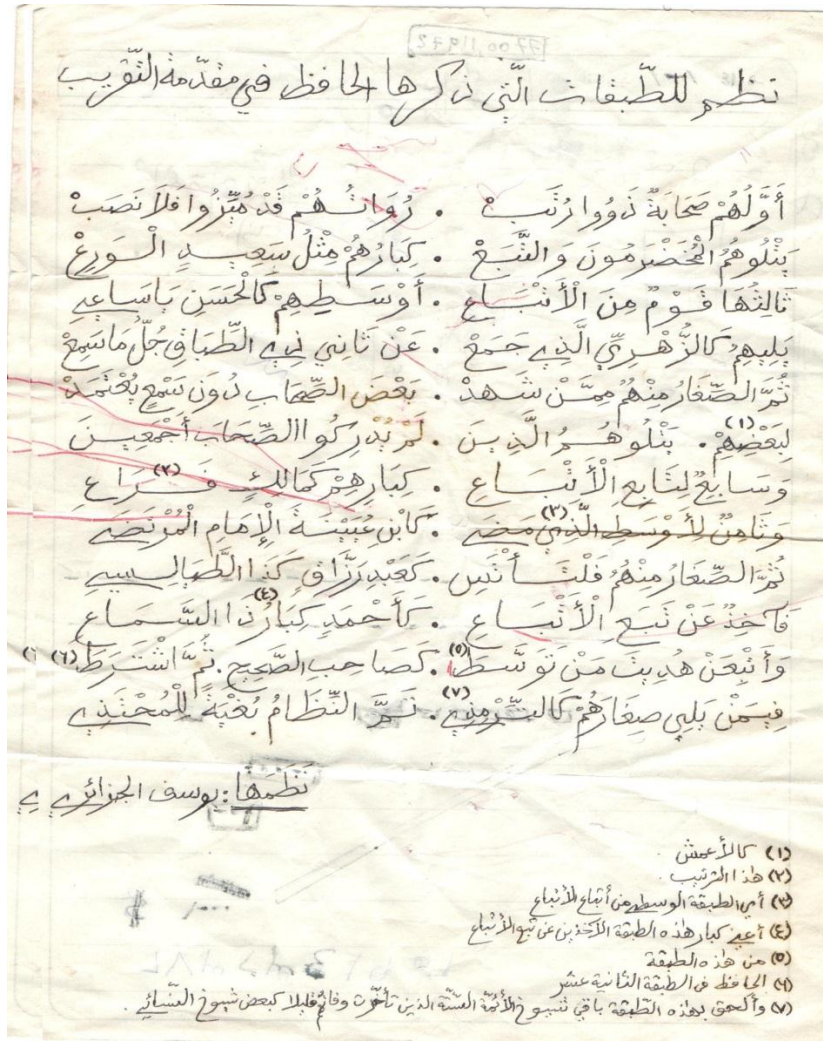 نظم للطّبقات الّتي ذكرها الحافظ في مقدّمة التّقريب
أَوَّلُهُمْ صَحَابَةٌ ذَوُوا رُتَبْ . رُوَاتُهُمْ قَدْ مُيِّزُوا فَلَا نَصَبْ
يَتْلُوهُمُ الْمُخَضْرَمُونَ وَالتَّبَعْ . كِبَارُهُمْ مِثْلُ سَعِيدٍ الْوَرِعْ
ثَالِثُهَا قَوْمٌ مِنَ الْأَتْبَاعِ . أَوْسَطِهِمْ كَالْحَسَنِ يَا سَاعِي
يَلِيهِمُ كَالزُّهْرِيِّ الَّذِي جَمَعْ . عَنْ ثَانِي ذِي الطِّبَاقِ جُلَّ مَا سَمِعْ
ثُمَّ الصِّغَارُ مِنْهُمُ مِمَّنْ شَهِدْ . بَعْضَ الصِّحَابِ دُونَ سَمْعٍ يُعْتَمَدْ
لِبَعْضِهِمْ (١) . يَتْلُوهُمُ الَّذِينَ . لَمْ يُدْرِكُوا الصِّحَابَ أَجْمَعِينَ
وَسَابِعٌ لِتَابِعِ الْأَتْبَاعِ . كِبَارِهِمْ كَمَالِكٍ فَرَاعِ (٢)
وَثَامِنٌ لِأَوْسَطِ الَّذِي مَضَى (٣) . كَابْنِ عُيَيْنَةَ الْإِمَامِ الْمُرْتَضَى
ثُمَّ الصِّغَارُ مِنْهُمُ فَلْتَأْتَسِ . كَعَبْدِ رَزَّاقٍ كَذَا الطَّيَالِسِي
فَآخِذٌ عَنْ تَبَعِ الْأَتْبَاعِ . كَأَحْمَدٍ كِبَارُ (٤) ذَا السَّمَاعِ
وَأَتْبِعَنْ هُدِيتَ مَنْ تَوَسَّطَ (٥) . كَصَاحِبِ الصَّحِيحِ . ثُمَّ اشْتَرَطَ (٦)
فِيمَنْ يَلِي صِغَارَهُمْ كَالتِّرْمِذِي (٧) . تَمَّ النِّظَامُ بُغْيَةً لِلْمُحْتَذِي
نَظَمَهَا : يوسف الجزائري
(١) كالأعمش .
(٢) هذا الترتيب .
(٣) أي الطبقة الوسطى من أتباع الأتباع
(٤) أعني كبار هذه الطبقة الآخذين عن تبع الأتباع
(٥) من هذه الطبقة
(٦) الحافظ في الطبقة الثانية عشر
(٧) وألحق بهذه الطبقة باقي شيوخ الأئمة الستة الذين تأخرت وفاتهم قليلا كبعض شيوخ النسائي .